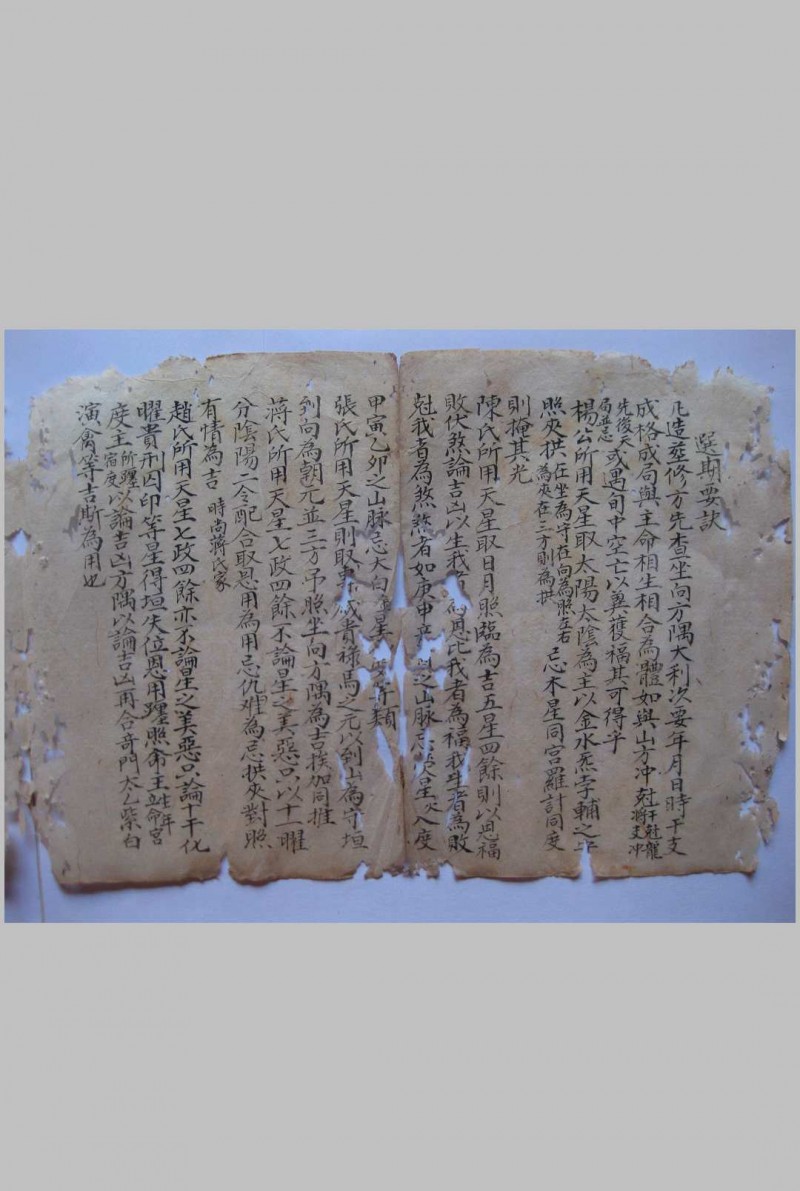 選期要訣
凡造葬修方先查坐向方隅大利次要年月日時干支
成格成局與主命相生相合為體如與山方冲尅干尅龍將支冲
先後天局並忌或遇旬中空亡以兾獲福其可得乎
楊公所用天星取太陽太陰為主以金水炁孛輔之
照夾拱在坐為守在向為照左右為夾在三方則為拱忌木星同宮羅計同度
則掩其光
陳氏所用天星取日月照臨為吉五星四餘則以恩福
敗伏煞論吉凶以生我為恩比我者為福我生者為敗
尅我者為煞煞者如庚申之山脉忌火星入度
甲寅乙卯之山脉忌太白等類
張氏所用天星則取貴祿馬之元以到山為守垣
到向為朝元並三方吊照坐向方隅為吉挨加同推
蔣氏所用天星七政四餘不論星之美惡只以十一曜
分陰陽二令配合取恩用為用忌仇难為忌拱夾對照
有情為吉 時尚蔣氏家
趙氏所用天星七政四餘亦不論星之美惡只論十干化
曜貴刑囚印等星得垣失位恩用躔照命主生年立命宮
度主所躔宿度以論吉凶方隅以論吉凶再合奇門太乙紫白
演禽等吉斯為用也